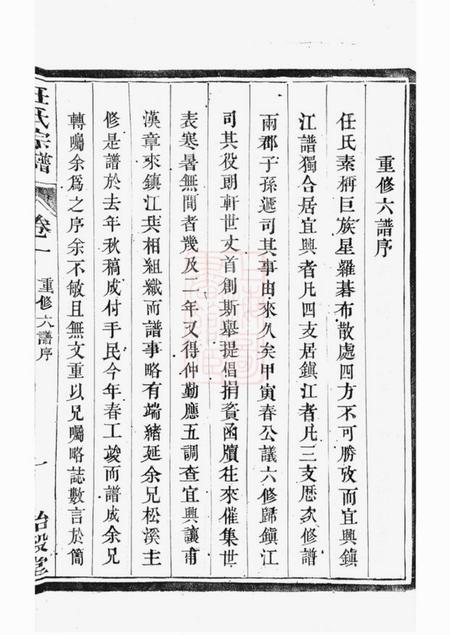 重修六譜序
任氏素稱巨族星羅碁布散處四方不可勝攷而宜興鎮
江譜獨合居宜興者凡四支居鎮江者凡三支歷次修譜
兩郡子孫遞司其事由來久矣甲寅春公議六修歸鎮江
司其役朗軒世丈首創斯舉提倡捐資函牘往來催集世
表寒暑無間者幾及二年又得仲勤應五調查宜興讓甫
漢章來鎮江共相組織而譜事略有端緒延余兄松溪主
修是譜於去年秋稿成付手民今年春工竣而譜成余兄
轉囑余爲之序余不敏且無文重以兄囑略誌數言於簡
任氏宗譜
卷一
重修六譜序
一